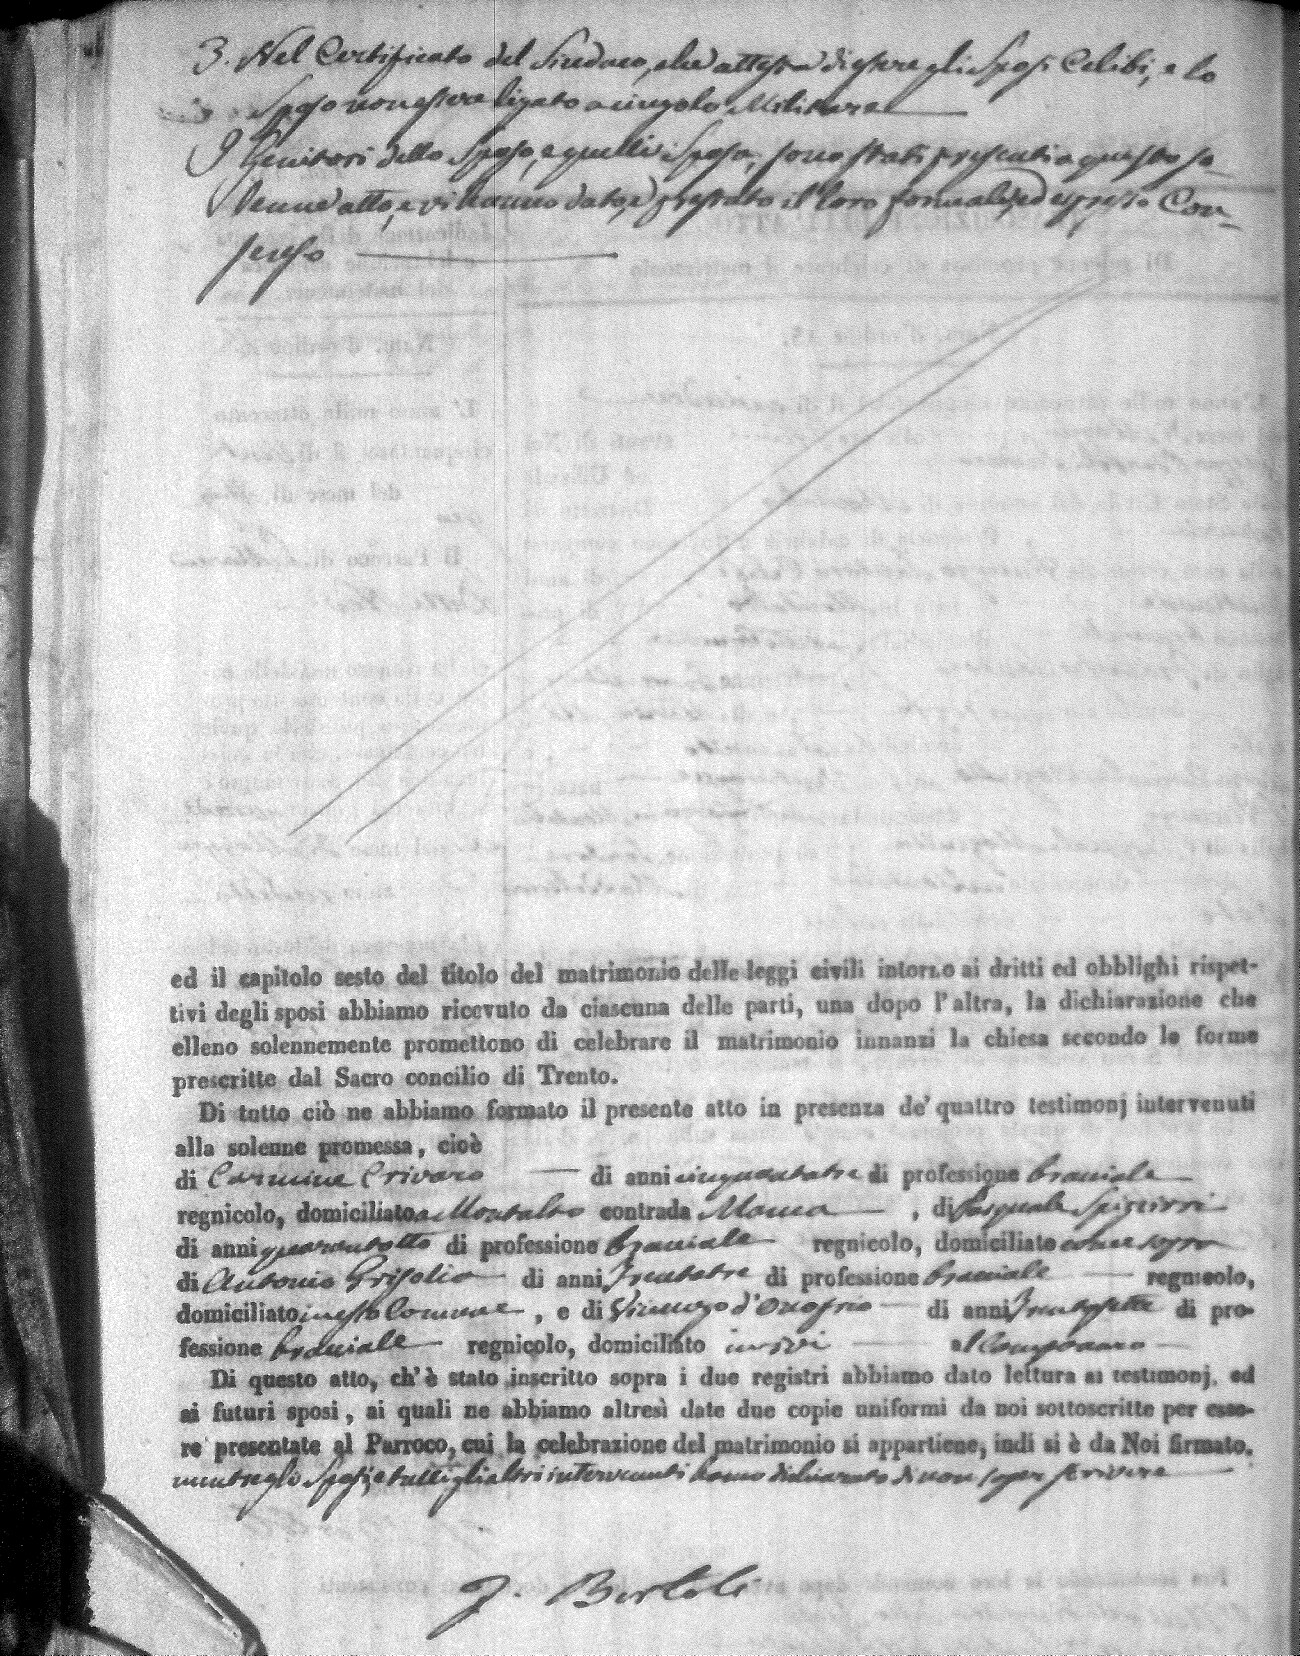 3. Nel Certificato del Sindaco, che attesta di essere gli Sposi Celibi, e lo
Sposo non essere ligato a cingolo Militare
I Genitori dello Sposo, e quelli Sposa, sono stati presenti a questo so-
lenne atto, e vi hanno dato, e prestato il loro formale, ed espresso Con-
senso
ed il capitolo sesto del titolo del matrimonio delle leggi civili intorno ai dritti ed obblighi rispet-
tivi degli sposi abbiamo ricevuto da ciascuna delle parti, una dopo l'altra, la dichiarazione che
elleno solennemente promettono di celebrare il matrimonio innanzi la chiesa secondo le forme
prescritte dal Sacro concilio di Trento.
Di tutto ciò ne abbiamo formato il presente atto in presenza de' quattro testimonj intervenuti
alla solenne promessa, cioè
di Carmine Crivaro di anni cinquantatre di professione braciale
regnicolo, domiciliato a Montalto contrada , di Pasquale Spizzirri
di anni quarantotto di professione braciale regnicolo, domiciliato come sopra
di Antonio Grisolia di anni trentatre di professione braciale regnicolo,
domiciliato in esso Comune , e di Vincenzo d'Onofrio di anni trentasette di pro-
fessione braciale regnicolo, domiciliato ivi
Di questo atto, ch'è stato inscritto sopra i due registri abbiamo dato lettura ai testimonj, ed
ai futuri sposi, ai quali ne abbiamo altresì date due copie uniformi da noi sottoscritte per esse-
re presentate al Parroco, cui la celebrazione del matrimonio si appartiene, indi si è da Noi firmato,
mentre gli Sposi, e tutti gli altri intervenuti hanno dichiarato di non saper scrivere